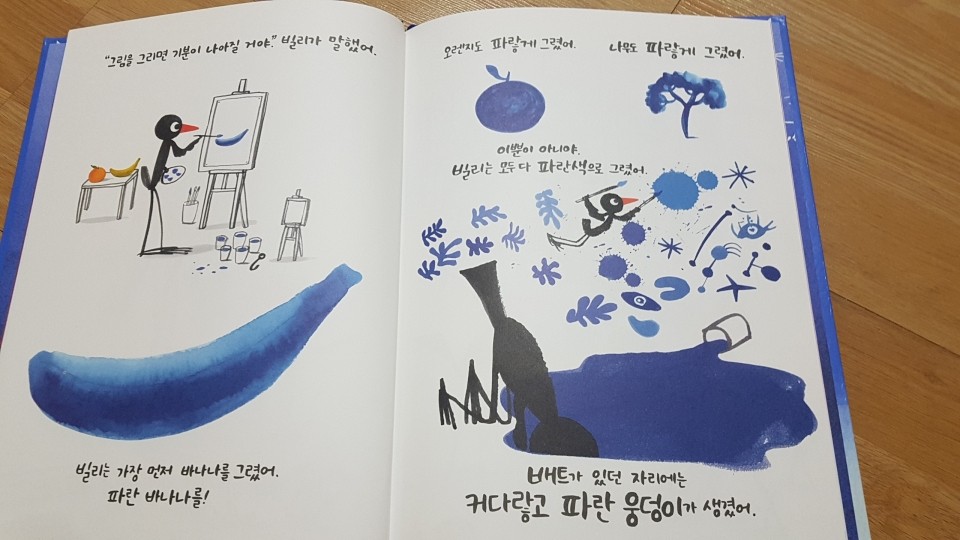 "그림을 그리면 기분이 나아질 거야." 빌리가 말했어.
빌리는 가장 먼저 바나나를 그렸어.
파란 바나나를!
오렌지도 파랗게 그렸어.
나무도 파랗게 그렸어.
이뿐이 아니야.
빌리는 모두 다 파란색으로 그렸어.
배트가 있던 자리에는
커다랗고 파란 웅덩이가 생겼어.